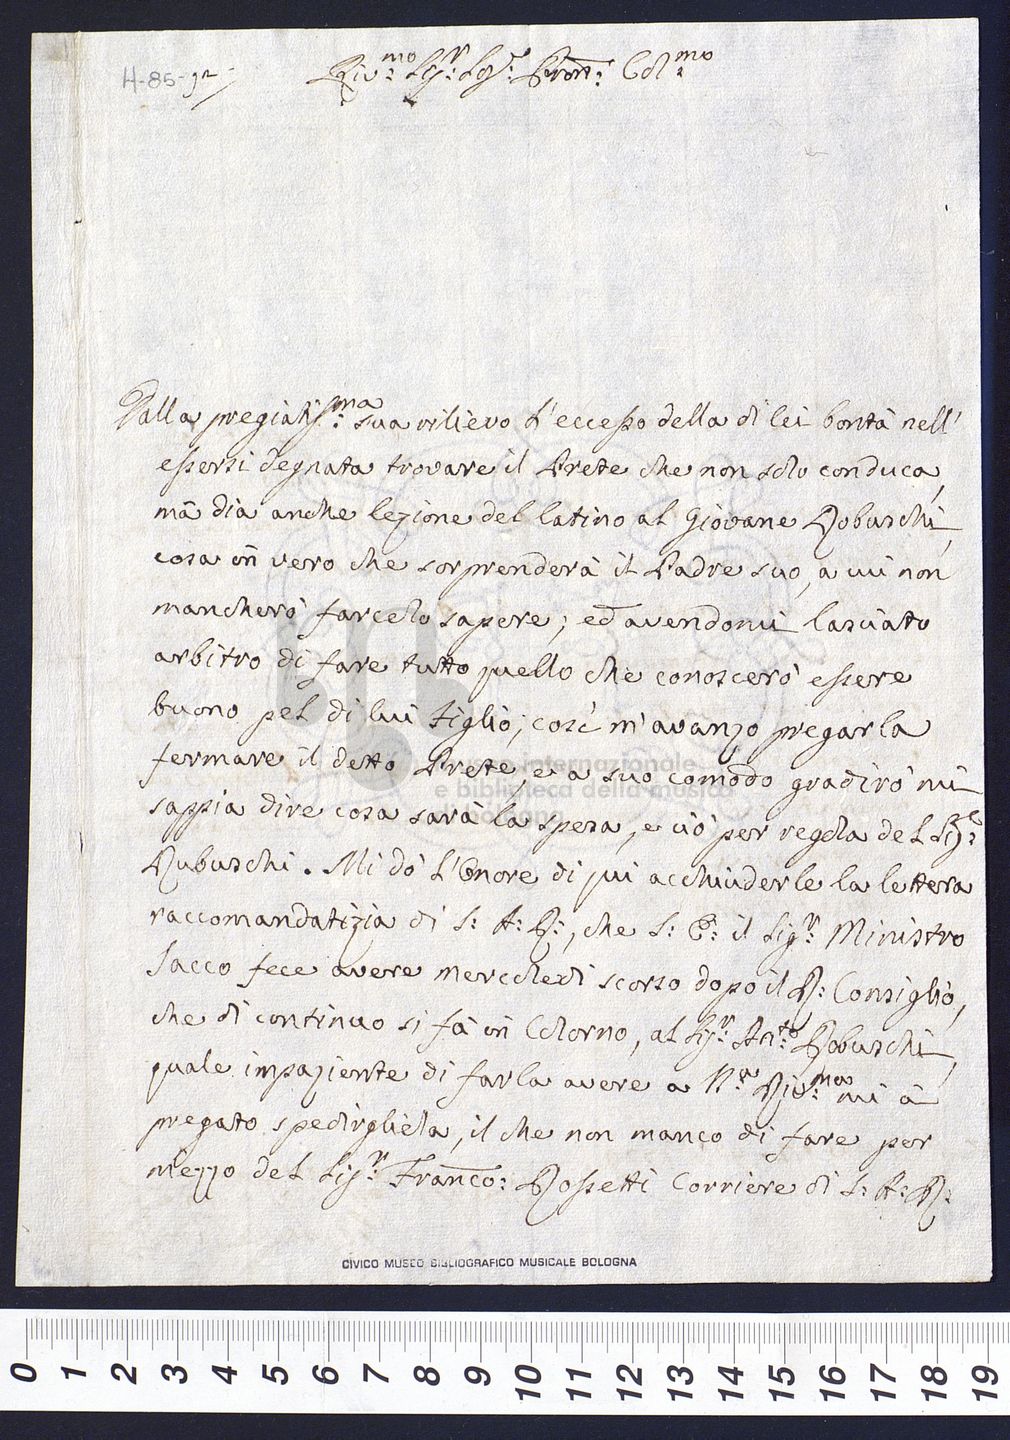 H-85-92
Riv:mo Sig:r Sig:r Pron: Col:mo
Dalla pregiatiss:ma sua rilievo l'eccesso della di lei bontà nell'
essersi degnata trovare il Prete che non solo conduca,
mà dia anche lezione del latino al Giovane Robuschi,
cosa in vero che sorprenderà il Padre suo, a cui non
mancherò farcelo sapere; ed avendomi lasciato
arbitro di fare tutto quello che conoscerò essere
buono pel di lui Figlio; così m'avanzo pregarla
fermare il detto Prete, e a suo comodo gradirò mi
sappia dire cosa sarà la spesa, e ciò per regola del Sig:r
Rubuschi. Mi dò l'Onore di qui acchiuderle la lettera
raccomandatizia di S: A: R:, che S: E: il Sig:r Ministro
Sacco fece avere mercoledì scorso dopo il R: Consiglio,
che di continuo si fà in Colorno, al Sig:r Ant:o Robuschi,
quale impaziente di farla avere a V:a Riv:ma mi à
pregato spedirgliela, il che non manco di fare per
mezzo del Sig:r Franco: Rossetti Corriere di S: A: R:
museo internazionale
e biblioteca della musica
di bologna
CIVICO MUSEO BIBLIOGRAFICO MUSICALE BOLOGNA
0 1 2 3 4 5 6 7 8 9 10 11 12 13 14 15 16 17 18 19